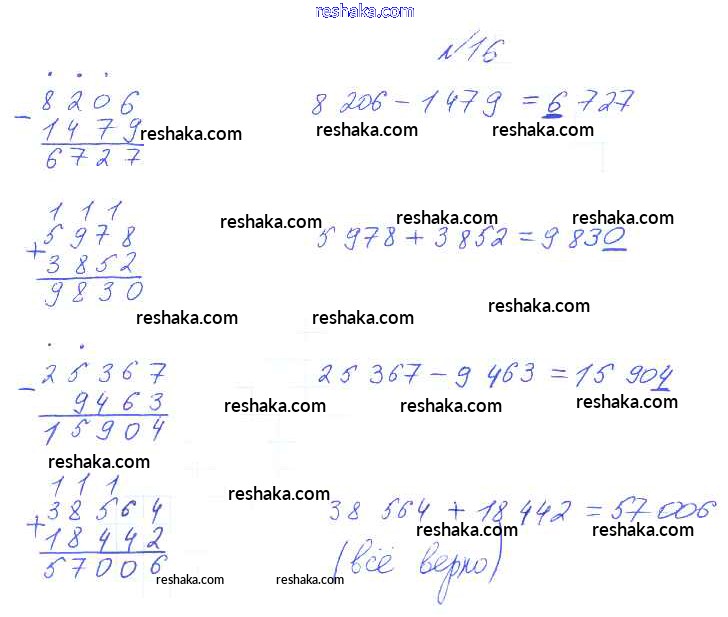 reshaka.com
№16
. . .
- 8206
1479
6727
8 206 - 1 479 = 6 727
reshaka.com reshaka.com reshaka.com
1 1 1
+ 5978
3852
9830
5 978 + 3 852 = 9 830
reshaka.com reshaka.com reshaka.com
reshaka.com reshaka.com reshaka.com
. .
- 25367
9463
15904
25 367 - 9 463 = 15 904
reshaka.com reshaka.com reshaka.com
reshaka.com
1 1 1
+ 38564
18442
57006
38 564 + 18 442 = 57 006
(всё верно)
reshaka.com reshaka.com reshaka.com
reshaka.com reshaka.com